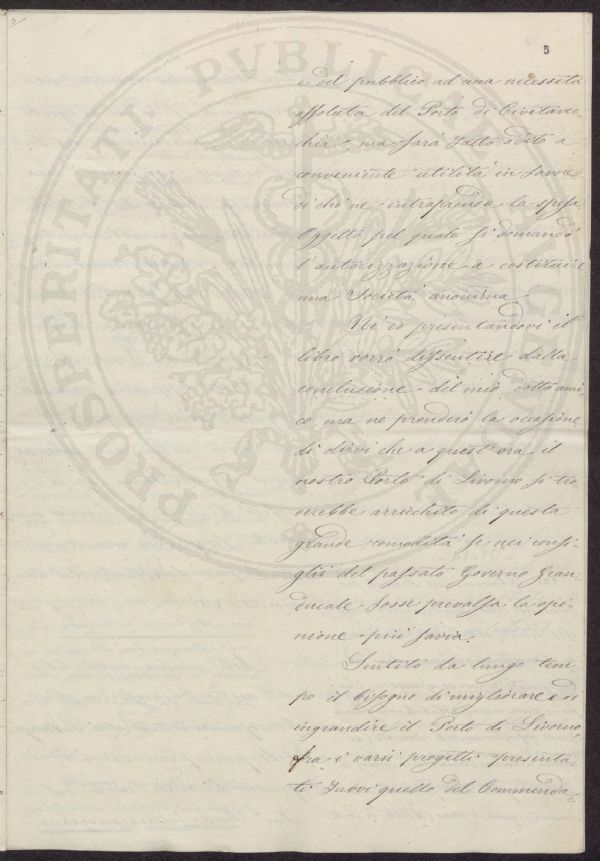 5
e del pubblico ad una necessità
assoluta del Porto di Civitavec-
chia, ma sarà fatto adito a
conveniente utilità in favore
di chi ne intraprenda la spesa.
Oggetto pel quale si domandò
l'autorizzazione a costituire
una Società anonima.
Nè io presentandovi il
libro vorrò dissentire dalla
conclusione del mio dotto ami-
co, ma ne prenderò la occasione
di dirvi che a quest'ora il
nostro Porto di Livorno si tro-
verebbe arricchito di questa
grande comodità se nei consi-
gli del passato Governo Gran-
ducale fosse prevalsa la opi-
nione più savia.
Sentito da lungo tem-
po il bisogno di migliorare e di
ingrandire il Porto di Livorno,
fra i varii progetti presenta-
ti fuvvi quello del Commenda-
PROSPERITATI PVBLICAE